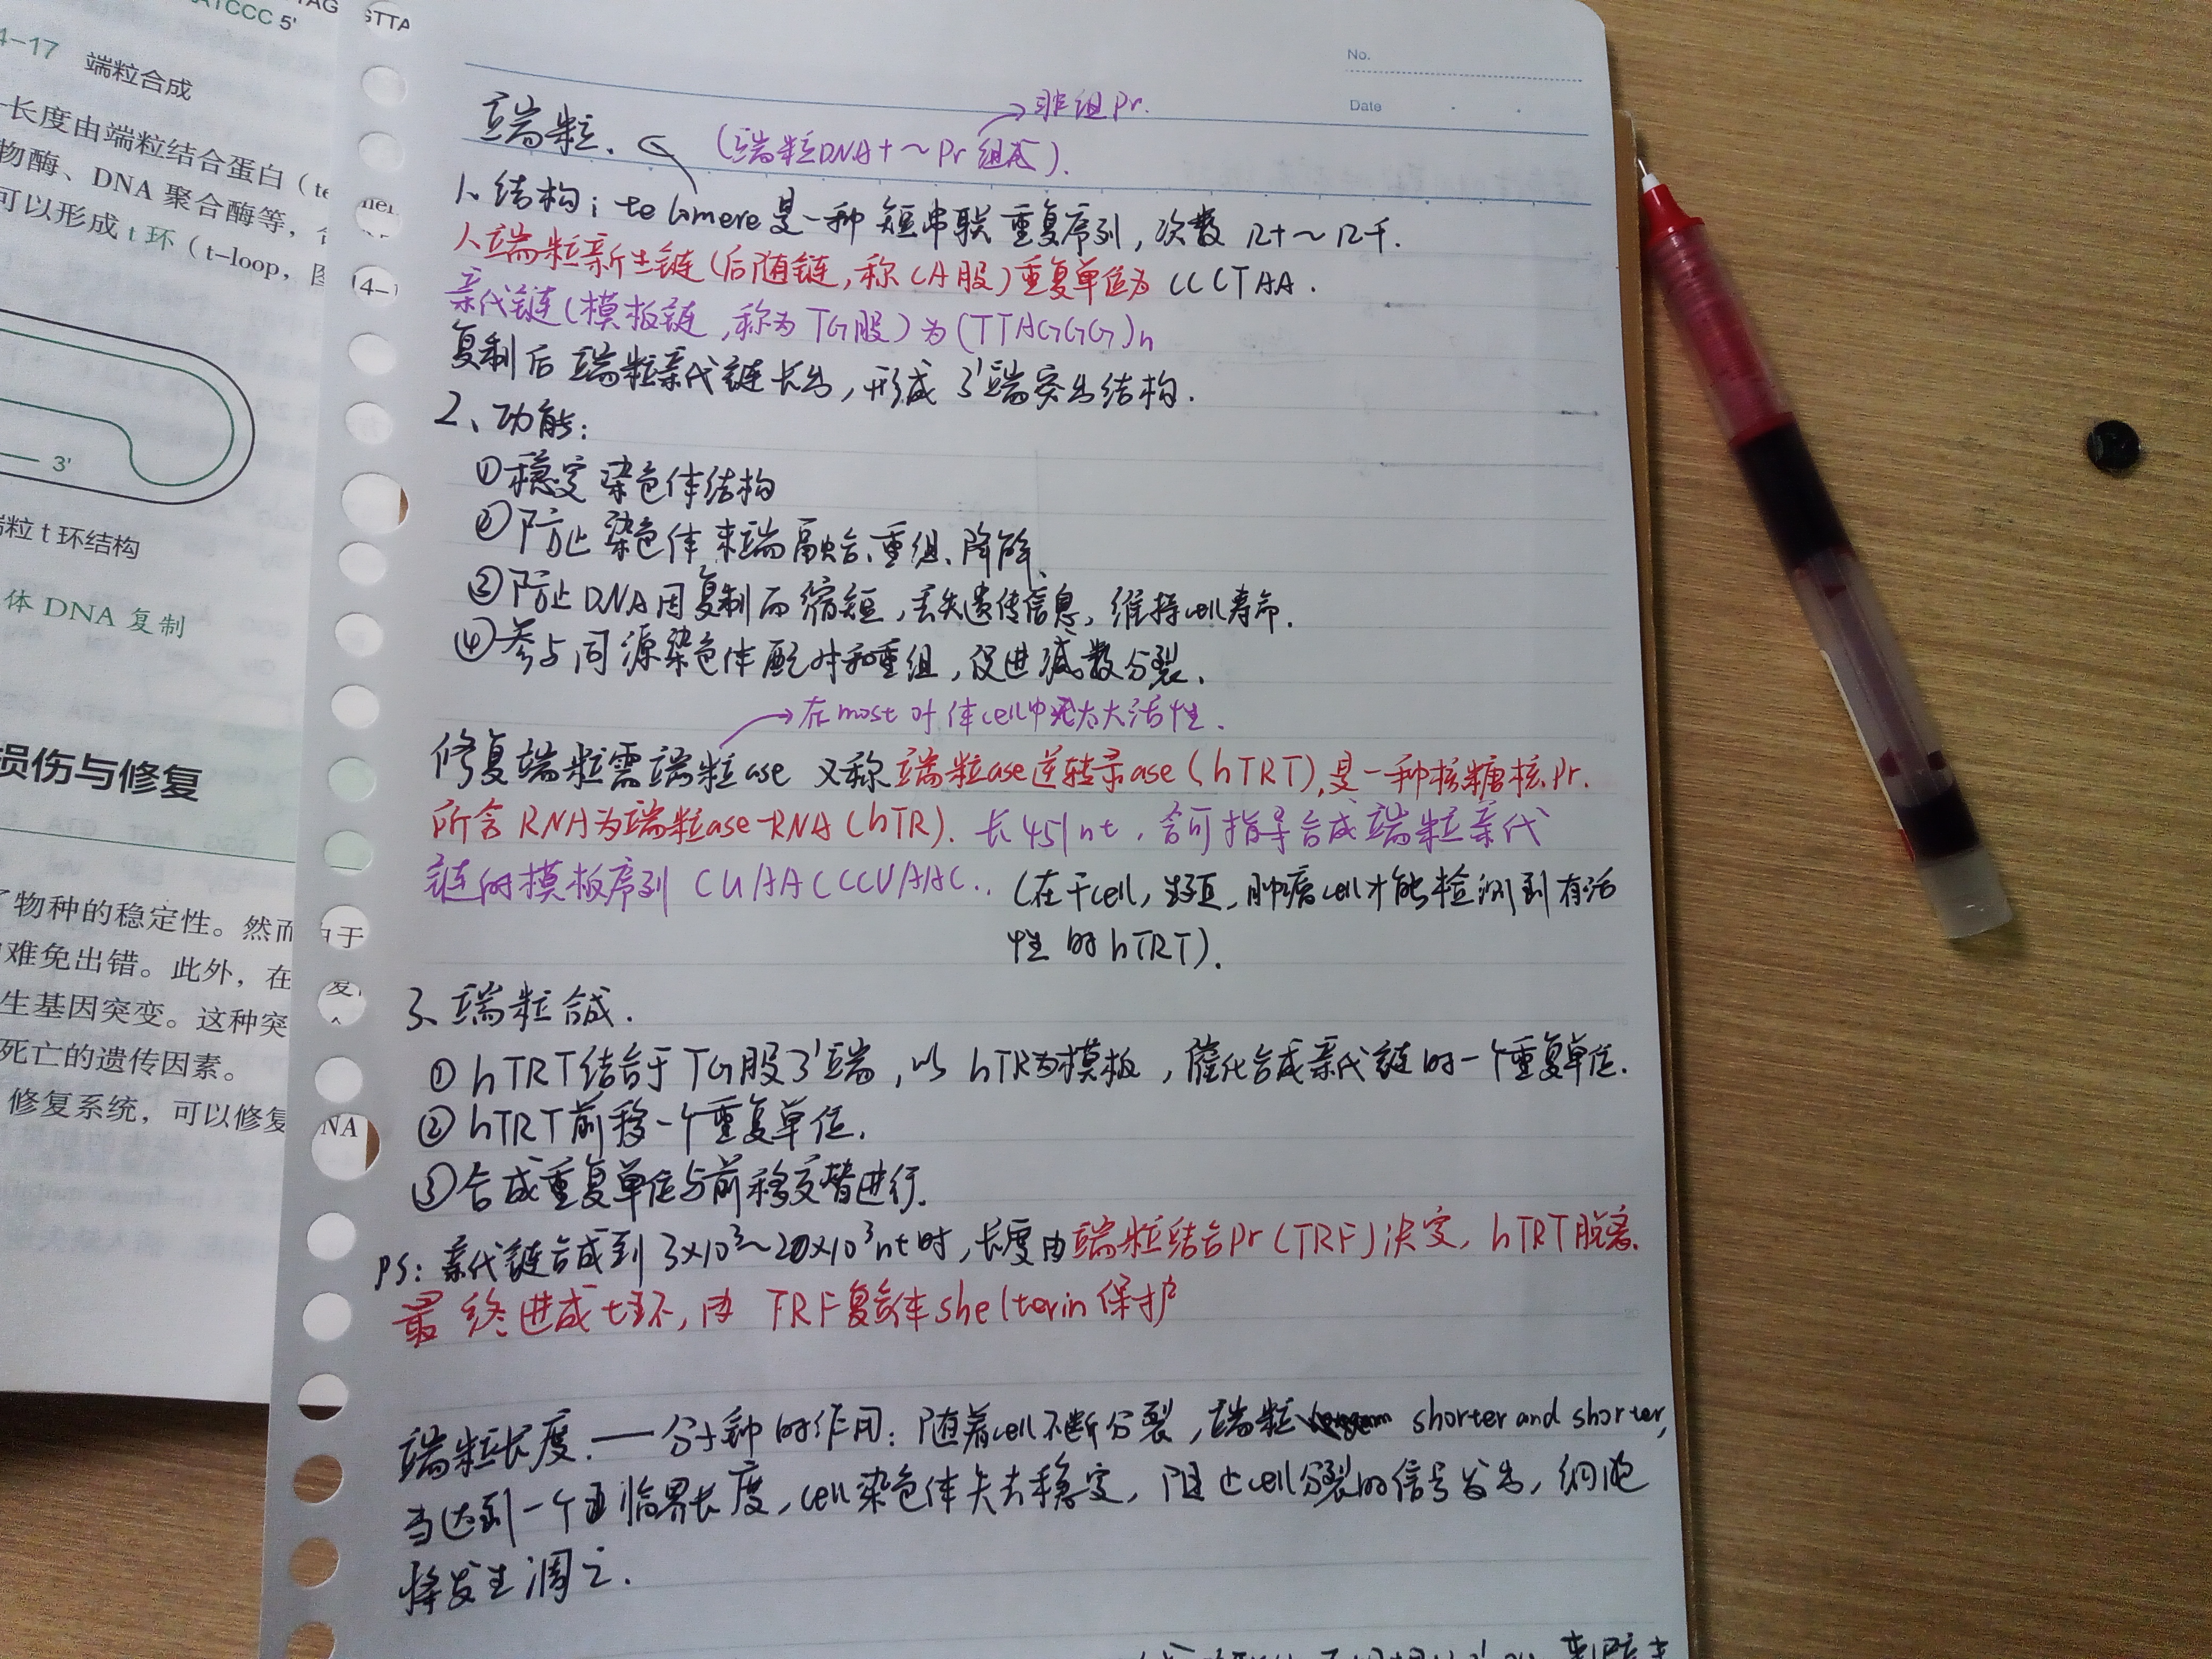 TAG
ATCCC 5'
4-17 端粒合成
长度由端粒结合蛋白（te
物酶、DNA 聚合酶等，
可以形成 t 环（t-loop，图
3'
端粒 t 环结构
体 DNA 复制
损伤与修复
了物种的稳定性。然而
难免出错。此外，在
生基因突变。这种突
死亡的遗传因素。
修复系统，可以修复
GTTA
4-1
由于
复
NA
No.
Date
端粒.
(端粒DNA+~Pr组成).
→非组Pr.
1、结构: telomere是一种短串联重复序列，次数几十~几千.
人端粒新生链(后随链,称CA股)重复单位为 CCCTAA.
亲代链(模板链,称为TG股)为(TTAGGG)n
复制后端粒亲代链长出,形成3'端突出结构.
2、功能:
①稳定染色体结构
②防止染色体末端融合、重组、降解、
③防止DNA因复制而缩短,丢失遗传信息,维持cell寿命.
④参与同源染色体配对和重组,促进减数分裂、
→在most 体cell中无太大活性.
修复端粒需端粒ase 又称端粒ase逆转录ase(hTRT),是一种核糖核Pr.
所含RNA为端粒ase-RNA(hTR). 长451nt, 含可指导合成端粒亲代
链的模板序列 CUAACCCUAAC.. (在干cell, 生殖、肿瘤cell才能检测到有活
性的hTRT).
3、端粒合成.
①hTRT结合于TG股3'端,以hTR为模板,催化合成亲代链的一个重复单位.
②hTRT前移一个重复单位.
③合成重复单位与前移交替进行.
PS: 亲代链合成到 3×10³~20×10³nt时,长度由端粒结合Pr(TRF)决定, hTRT脱离.
最终进成t环,由 TRF复合体shelterin保护
端粒长度.——分子钟的作用: 随着cell不断分裂,端粒 shorter and shorter,
当达到一个临界长度,cell染色体失去稳定,阻止cell分裂的信号发出,细胞
将发生凋亡.